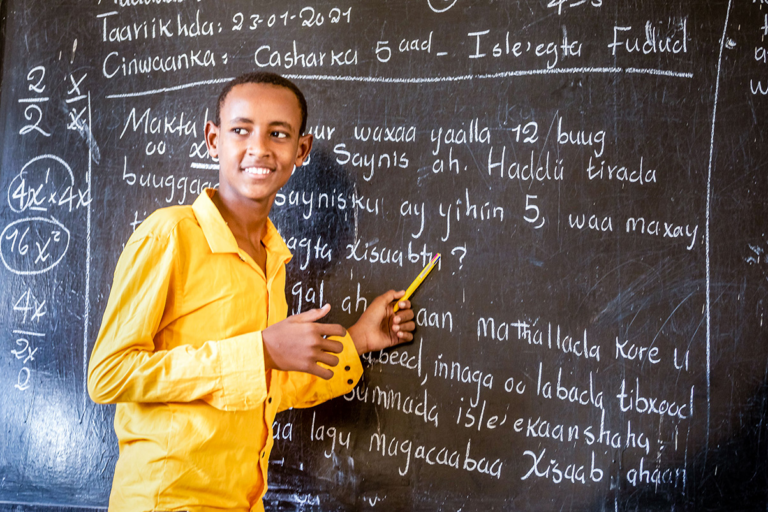 Taariikhda: 23-01-2021
Cinwaanka: Casharka 5aad - Isle'egta Fudud
Makta uur waxaa yaalla 12 buug
oo Saynis ah. Haddii tirada
buugga Sayniska ay yihiin 5, waa maxay
agta Xisaabta?
gal ah aan mathallada kore u
beed, innaga oo labada tibxood
summada isle'ekaanshaha
aa lagu magacaabaa Xisaab ahaan
2 x
2 x
4x¹ x 4x¹
16x²
4x
2x
2